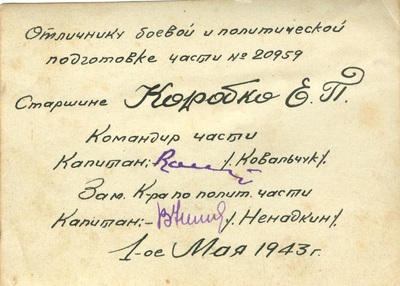 Отличнику боевой и политической
подготовке части № 20959
Старшине Коробко Е.П.
Командир части
Капитан:- /.Ковальчук/.
Зам. К-ра по полит. части
Капитан:- /.Ненадкин/.
1-ое Мая 1943 г.